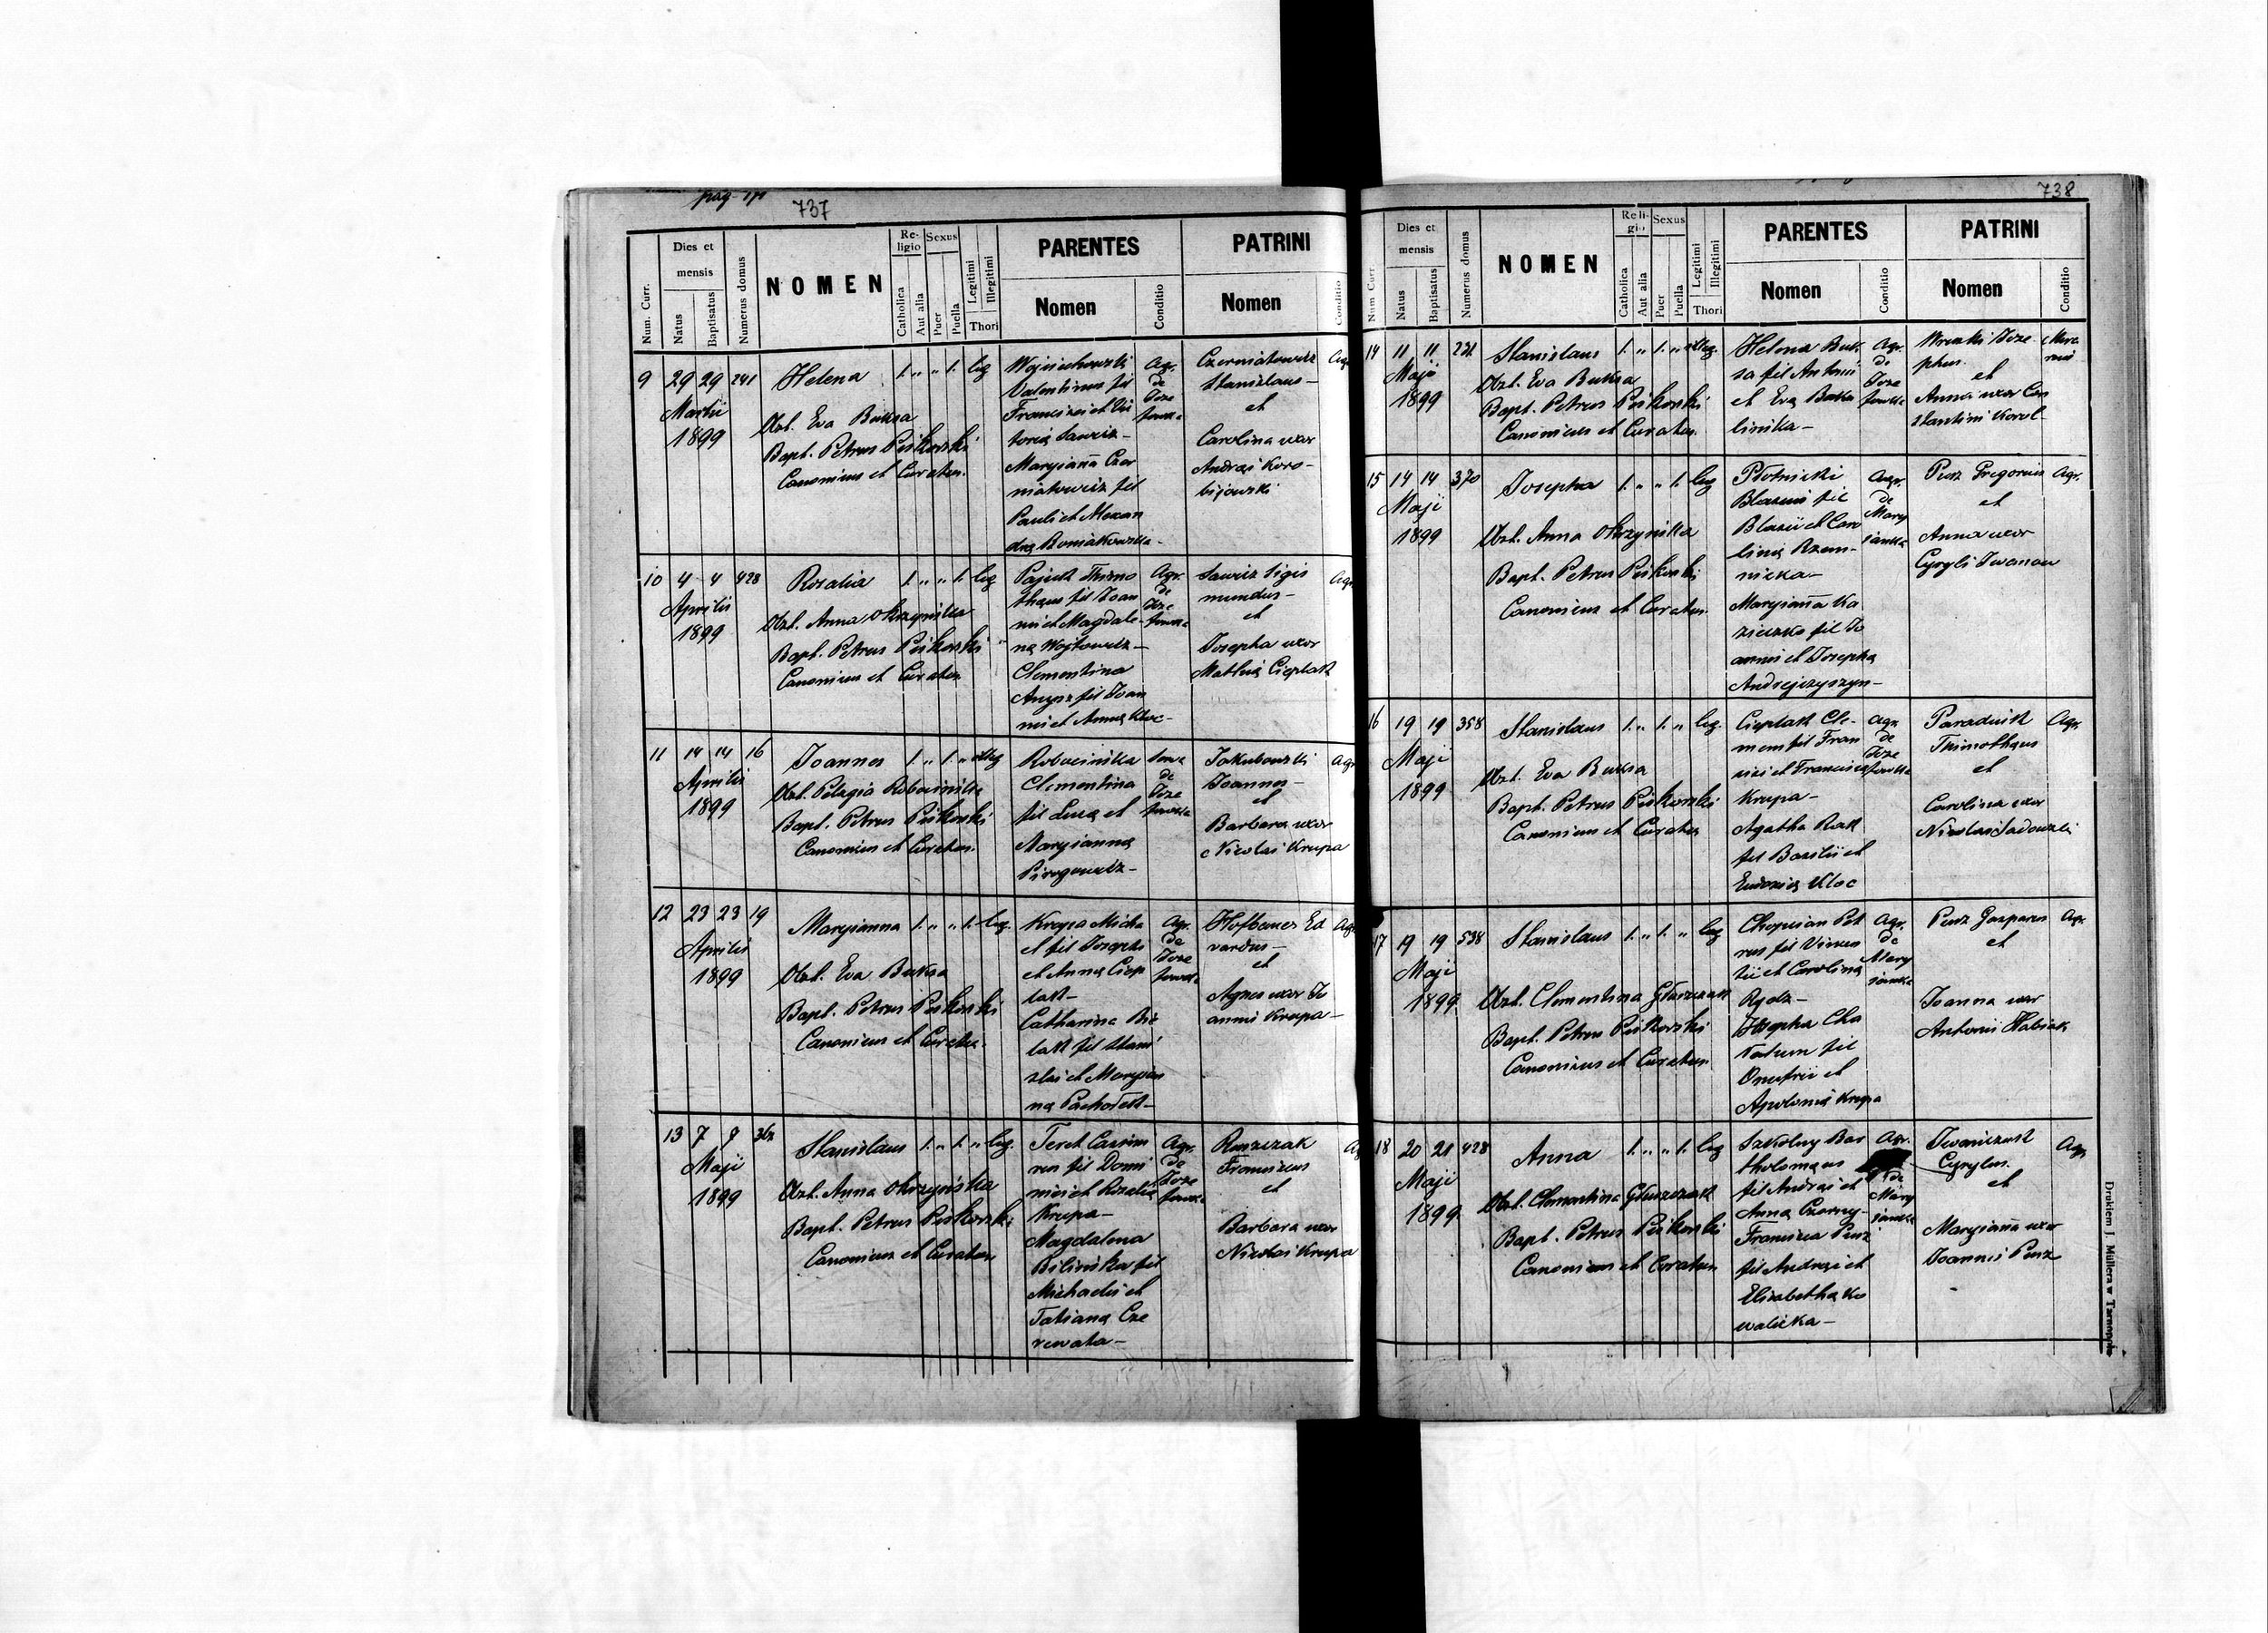 pag. 171
737
Num. Curr.
Dies et mensis
Natus
Baptisatus
Numerus domus
NOMEN
Religio
Catholica
Aut alia
Sexus
Puer
Puella
Legitimi
Illegitimi
Thori
PARENTES
Nomen
Conditio
PATRINI
Nomen
Conditio
9 29 29 241 Helena 1. " " 1. leg
Martii
1899
Obst. Eva Buksa
Bapt. Petrus Piskorski
Canonicus et Curatus.
Wojciechowski
Valentinus fil
Francisci et Vic
toria Sawicz-
Maryianna Czer
niatowicz fil
Pauli et Alexan
dra Boniakowska-
Agr.
de
Joze
fowka
Czerniatowicz
Stanislaus-
et
Carolina uxor
Andreæ Koro-
bijowski
Agr
10 4 4 428 Rosalia 1. " " 1. leg
Aprilis
1899
Obst. Anna Okrzynska
Bapt. Petrus Piskorski
Canonicus et Curatus
Pajuk Thimo
thæus fil Joan
nis et Magdale-
na Wojtowicz-
Clementina
fil Joan
nis et Anna Kloc-
Agr.
de
Joze
fowka
Sawicz Sigis
mundus-
et
Josepha uxor
Mathiæ Cieplak
Agr
11 14 14 16 Joannes 1. " 1. " illeg
Aprilis
1899
Obst. Pelagia Robocinska
Bapt. Petrus Piskorski
Canonicus et Curatus.
Robocinska
Clementina
fil Lucæ et
Maryianna
Pirogowicz-
de
Joze
fowka
Jakubowski
Joannes-
et
Barbara uxor
Nicolai Krupa
Agr
12 23 23 19 Maryianna 1. " " 1. leg.
Aprilis
1899
Obst. Eva Buksa
Bapt. Petrus Piskorski
Canonicus et Curatus.
Krupa Micha
el fil Josephi
et Anna Ciep
lak-
Catharina Bie
lak fil Stani
slai et Maryian
na Pachołek-
Agr.
de
Joze
fowka
Hofbauer Ed
vardus-
et
Agnes uxor Jo
annis Krupa-
Agr
13 7 7 362 Stanislaus 1. " 1. " leg.
Maji
1899
Obst. Anna Okrzynska
Bapt. Petrus Piskorski
Canonicus et Curatus
Teret Casimi
rus fil Domi
nici et Rozalia
Krupa-
Magdalena
Bilinska fil
Michaelis et
Tatiana Cze
rewata-
Agr.
de
Joze
fowka
Franciscus
et
Barbara uxor
Nicolai Krupa
738
Num. Curr.
Dies et mensis
Natus
Baptisatus
Numerus domus
NOMEN
Religio
Catholica
Aut alia
Sexus
Puer
Puella
Legitimi
Illegitimi
Thori
PARENTES
Nomen
Conditio
PATRINI
Nomen
Conditio
14 11 11 231 Stanislaus 1. " 1. " illeg.
Maji
1899
Obst. Eva Buksa
Bapt. Petrus Piskorski
Canonicus et Curatus.
Helena Buk
sa fil Antonii
et Eva
linska-
Agr.
de
Joze
fowka
Joze
phus.
et
Anna uxor Con
stantini Korol-
15 14 14 370 Josepha 1. " " 1. leg
Maji
1899
Obst. Anna Okrzynska
Bapt. Petrus Piskorski
Canonicus et Curatus.
Płotnicki
Blasius fil
Blasii et Caro
lina Rzem-
nicka-
Maryianna Ka
zieczko fil Jo
annis et Josepha
Andrejczyszyn-
Agr.
de
Mary
janka
Purz Gregorius
et
Anna uxor
Cyryli Iwanow
Agr.
16 19 19 358 Stanislaus 1. " 1. " leg.
Maji
1899
Obst. Eva Buksa
Bapt. Petrus Piskorski
Canonicus et Curatus
Cieplak Cle-
mens fil Fran
cisci et Francisca
Krupa-
Agatha Rak
fil Basilii et
Eudoxia Kloc
Agr.
de
Joze
fowka
Paradiuk
Thimothæus
et
Carolina uxor
Nicolai Sadowski
Agr.
17 19 19 538 Stanislaus 1. " 1. " leg
Maji
1899
Obst. Clementina Głuszczak
Bapt. Petrus Piskorski
Canonicus et Curatus.
Chopcian Pet
rus fil Vincen
tii et Carolina
Rydz-
Josepha Cha
fil
Onufrii et
Apolonia Krupa
Agr.
de
Mary
janka
Purz Gasparus
et
Joanna uxor
Antonii Habiak
Agr.
18 20 21 428 Anna 1. " " 1. leg
Maji
1899
Obst. Clementina Głuszczak
Bapt. Petrus Piskorski
Canonicus et Curatus
Szkolny Bar
tholomæus
fil Andreæ et
Anna Czorny-
Francisca Purz
fil Andreæ et
Elisabetha Ko
walicka-
Agr.
de
Mary
janka
Iwanczuk
Cyrylus.
et
Maryianna uxor
Joannis Purz
Agr
Drukiem J. Müllera w Tarnopolu